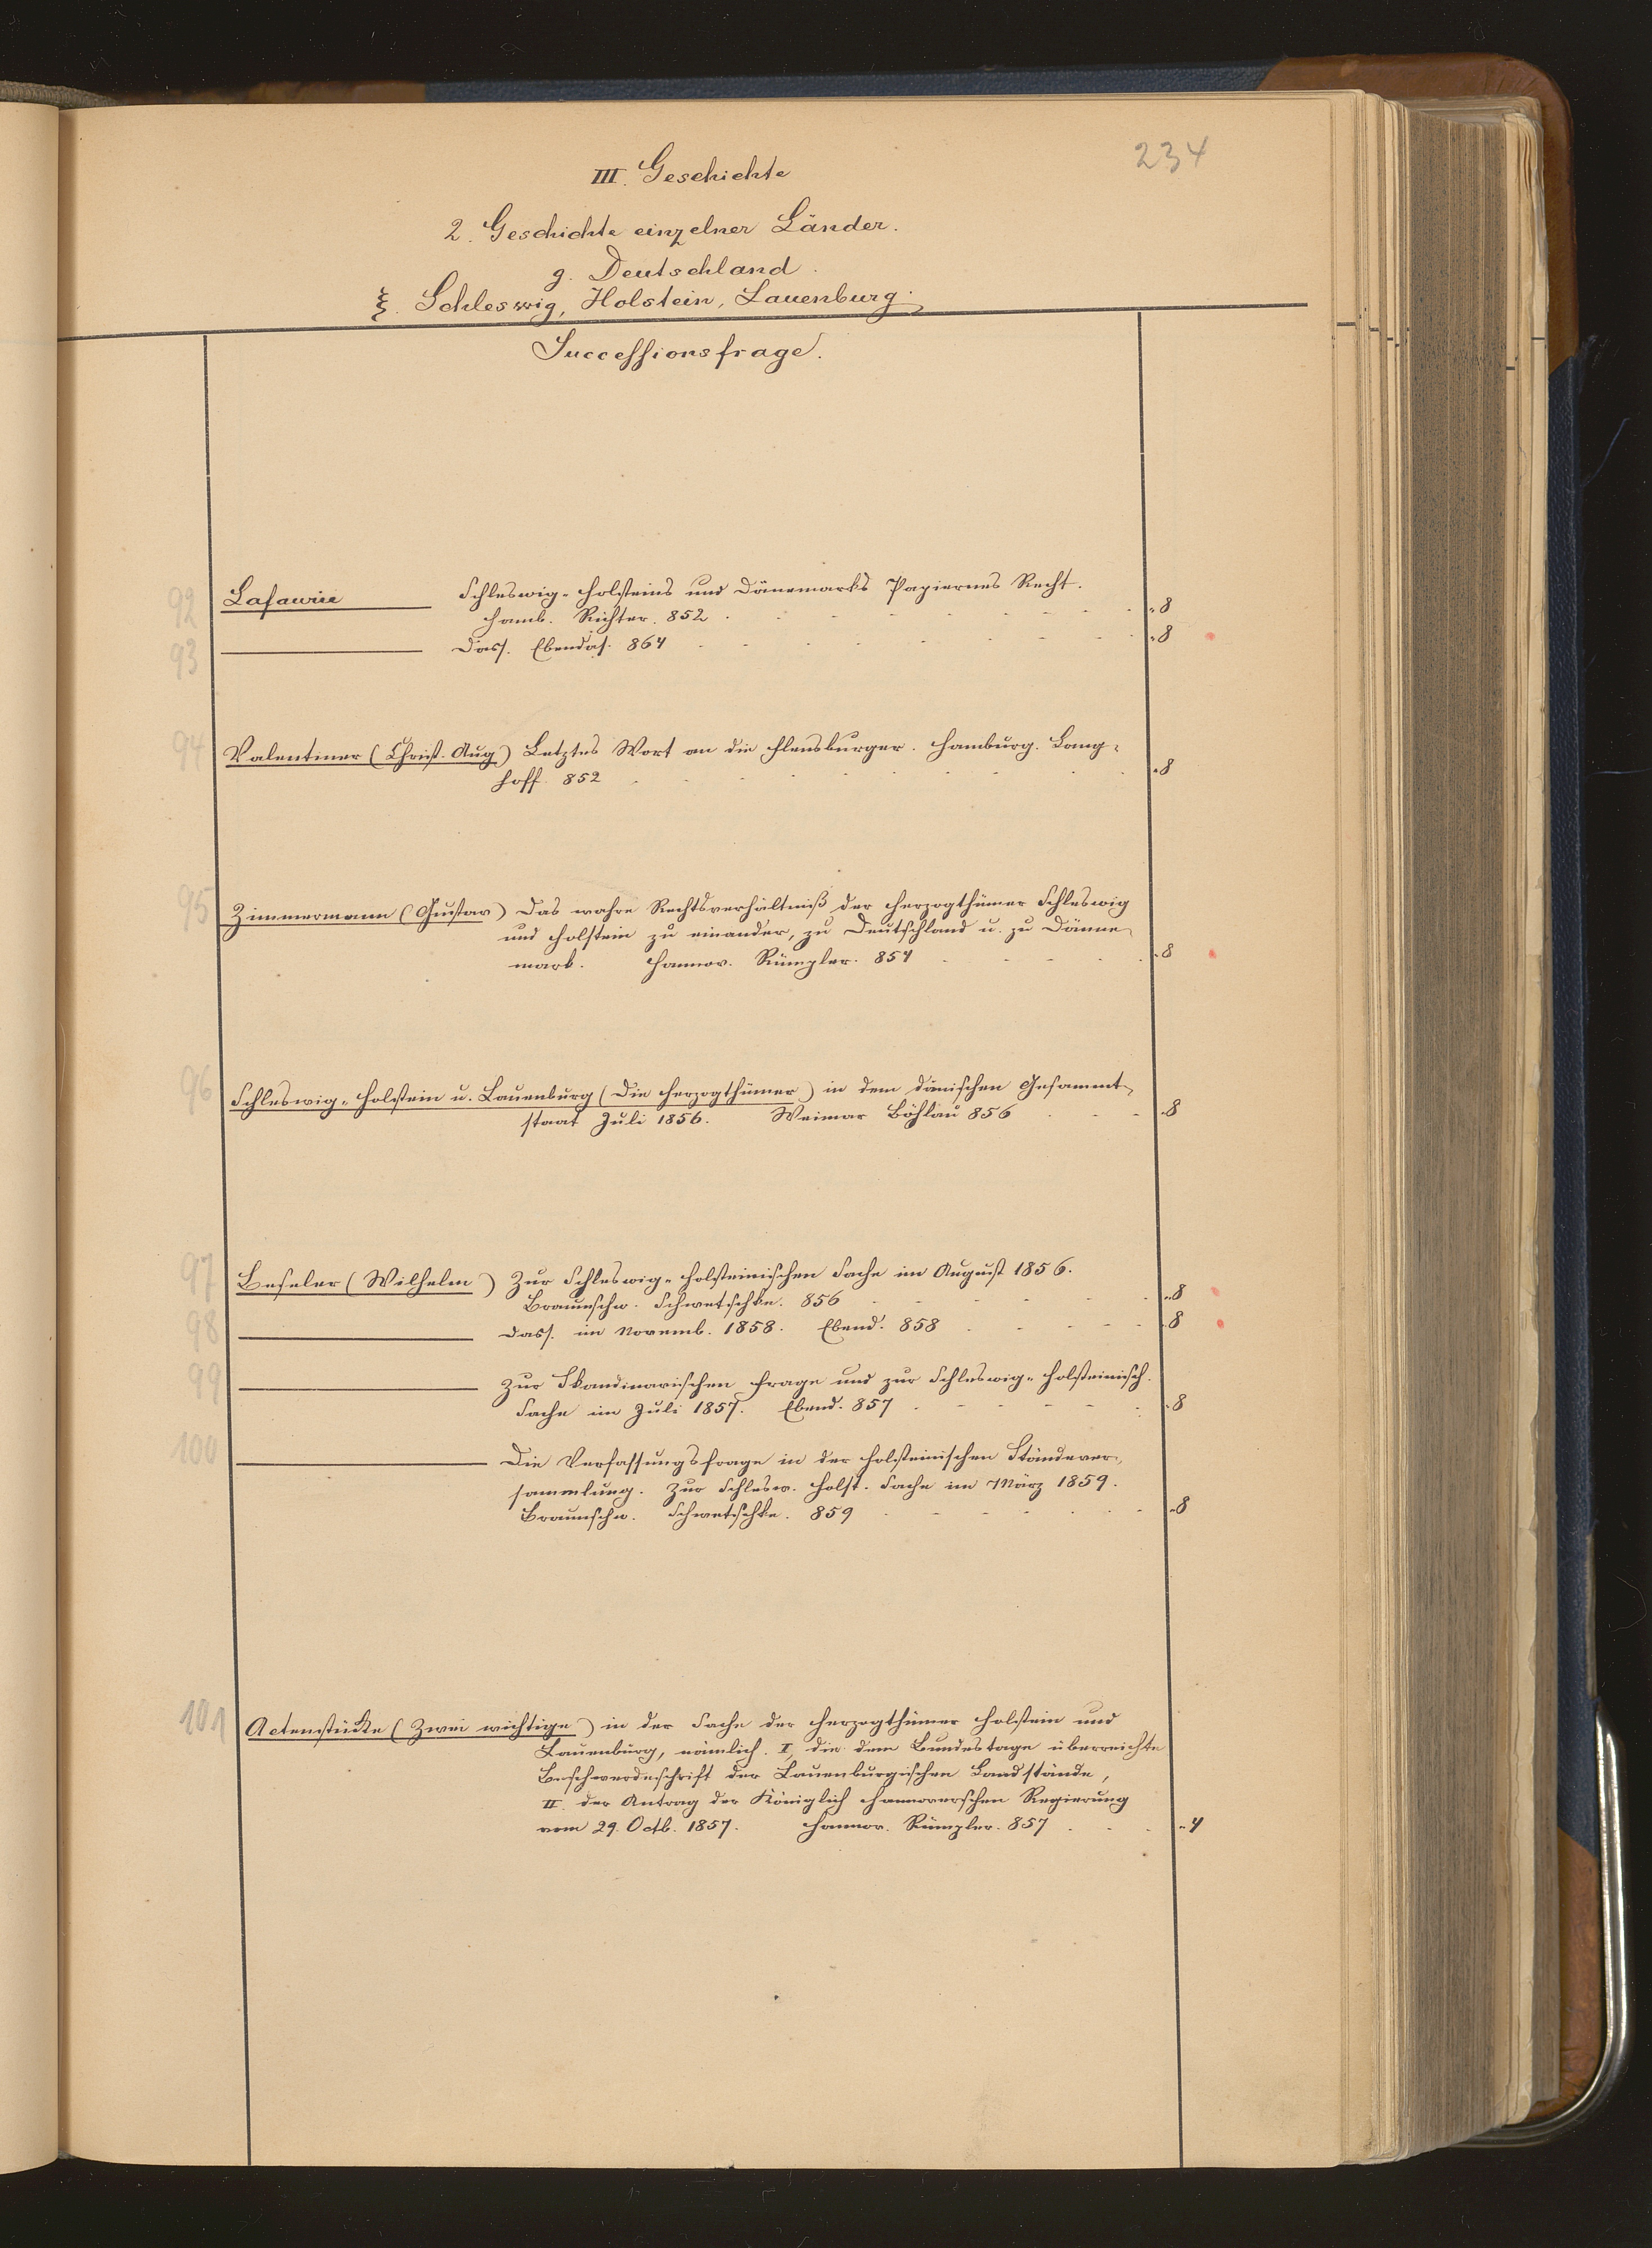 234
III. Geschichte
2. Geschichte einzelner Länder.
g. Deutschland.
ξ. Schleswig, Holstein, Lauenburg.
Successionsfrage.
92 Lafaurie Schleswig-Holsteins und Dänemarks Papiernes Recht.
Hamb. Richter. 852 8
93 Dass. Ebendas. 864 8
94 Valentiner (Christ. Aug) Letztes Wort an die Flensburger. Hamburg. Lang-
hoff. 852 8
95 Zimmermann (Gustav) Das wahre Rechtsverhältniß der Herzogthümer Schleswig
und Holstein zu einander, zu Deutschland u. zu Däne-
mark. Hannov. Rümpler. 854 8
96 Schleswig-Holstein u. Lauenburg (Die Herzogthümer) in dem dänischen Gesammt-
staat Juli 1856. Weimar Böhlau 856 8
97 Beseler (Wilhelm) Zur Schleswig-Holsteinischen Sache im August 1856.
Braunschw. Schwetschke. 856 8
98 Dass. im Novemb. 1858. Ebend. 858 8
99 Zur Skandinavischen Frage und zur Schleswig-Holsteinisch.
Sache im Juli 1857. Ebend. 857 8
100 Die Verfassungsfrage in der Holsteinischen Ständever-
sammlung. Zur Schlesw. Holst. Sache im März 1859.
Braunschw. Schwetschke. 859 8
101 Actenstücke (Zwei wichtige) in der Sache der Herzogthümer Holstein und
Lauenburg, nämlich. I, die dem Bundestage überreichte
Beschwerdeschrift der Lauenburgischen Landstände,
II. der Antrag der Königlich Hannoverschen Regierung
vom 29. Octb. 1857. Hannov. Rümpler. 857 4